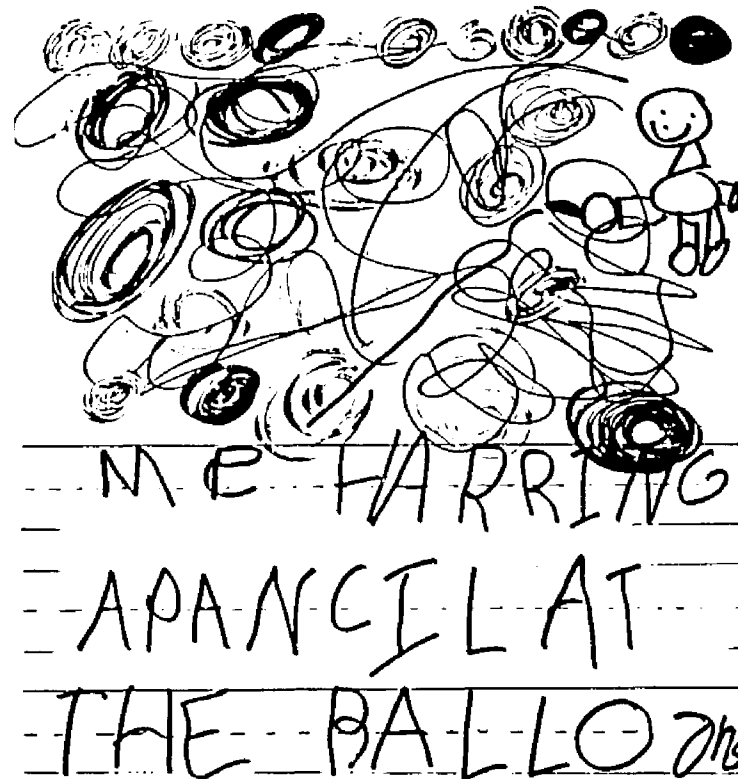 ME HARRING
APANCILAT
THE BALLOons